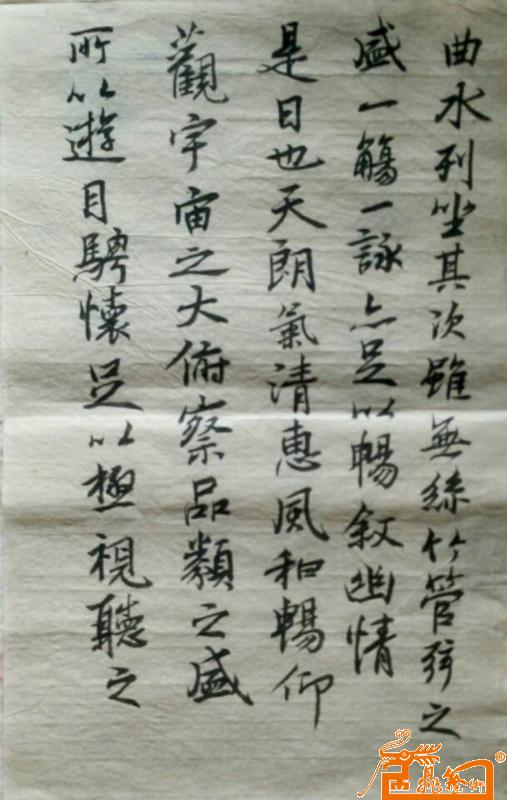 曲水列坐其次雖無絲竹管弦之
盛一觴一詠亦足以暢敘幽情
是日也天朗氣清惠風和暢仰
觀宇宙之大俯察品類之盛
所以遊目騁懷足以極視聽之